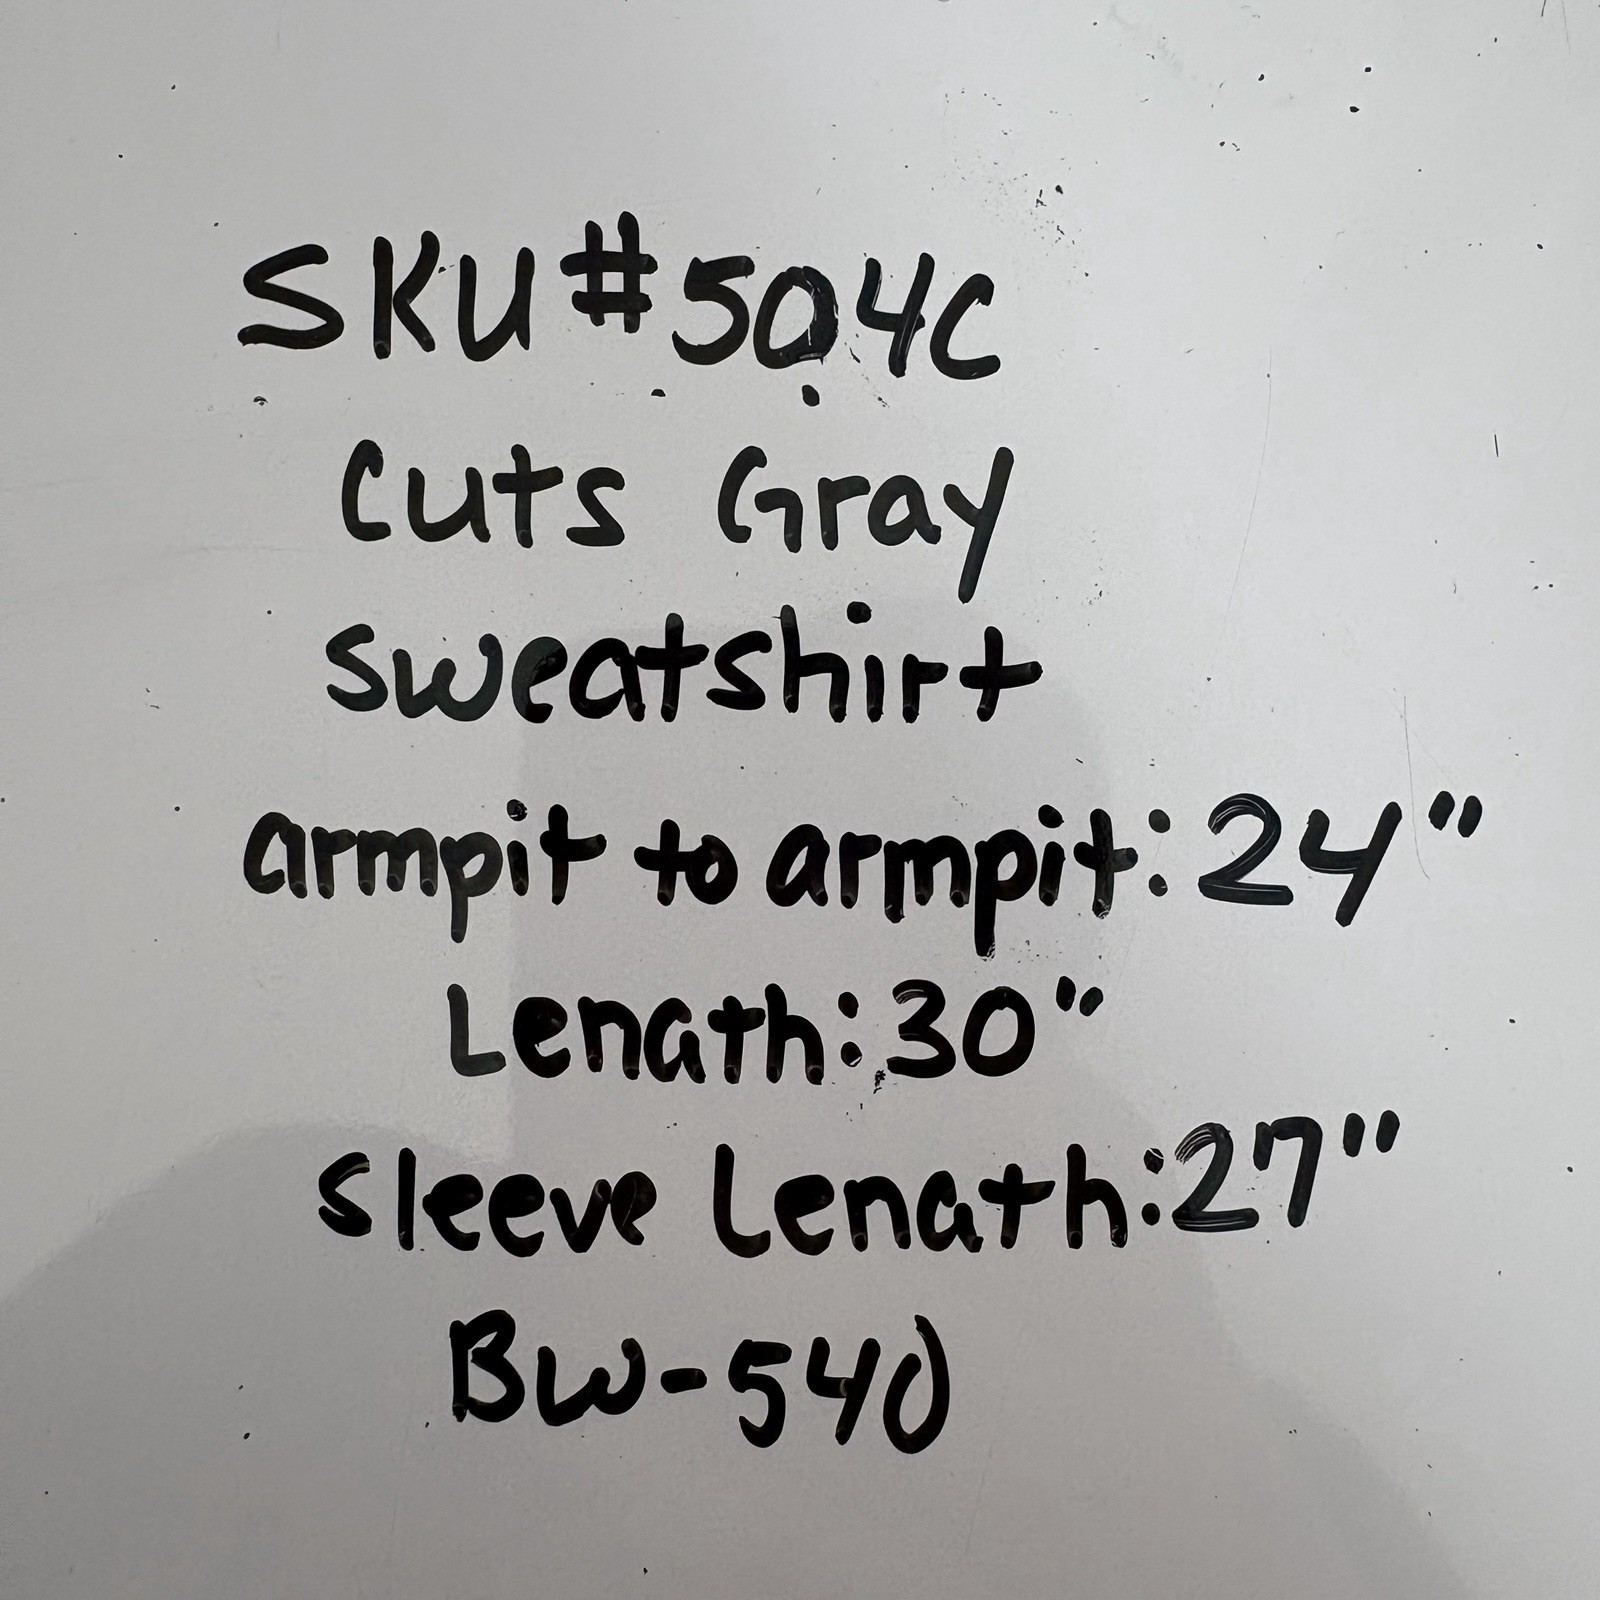 SKU#504C
Cuts Gray
Sweatshirt
armpit to armpit: 24"
Lenath: 30"
Sleeve Lenath: 27"
BW-540